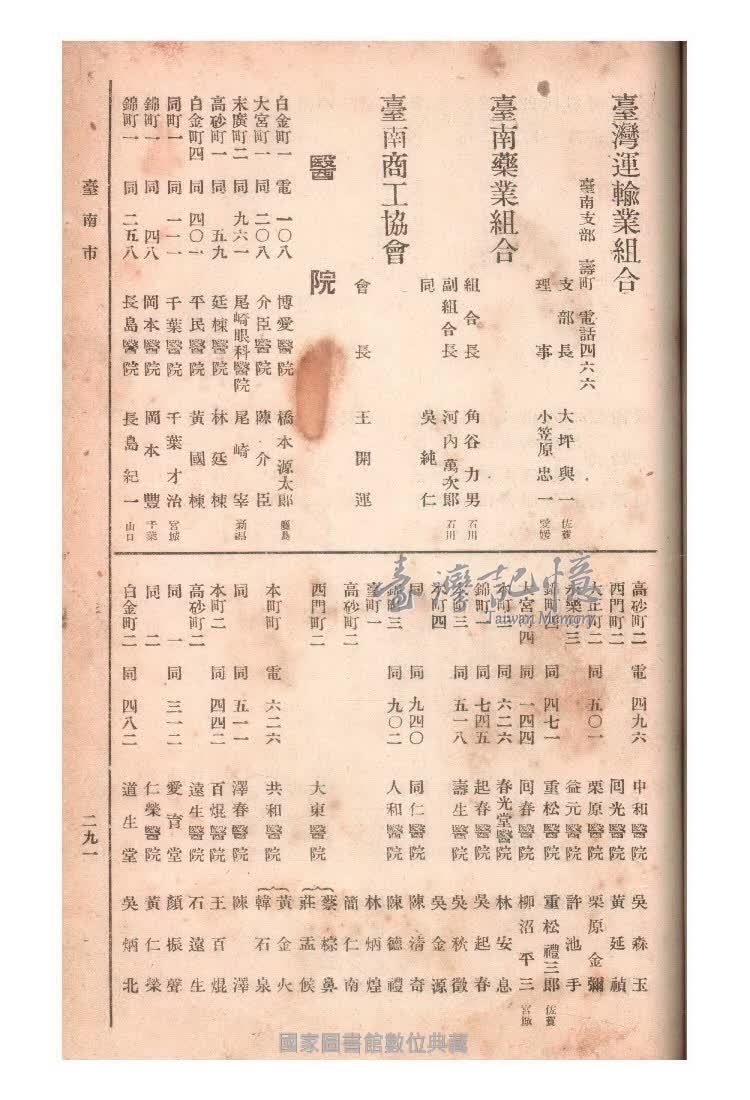 臺灣運輸業組合
臺南支部 壽町 電話四六六
支部長 大坪與一 佐賀
理事 小笠原忠一 愛媛
臺南藥業組合
組合長 角谷力男 石川
副組合長 河內萬次郎 石川
同 吳純仁
臺南商工協會
會長 王開運
醫院
白金町一 電 一〇八 博愛醫院 橋本源太郎
大宮町一 同 二〇八 介臣醫院 陳介臣
末廣町二 同 九六一 尾崎眼科醫院 尾崎宰 新潟
高砂町一 同 五九 廷棟醫院 林廷棟
白金町四 同 四〇一 平民醫院 黃國棟
同町一 同 一一一 千葉醫院 千葉才治 宮城
錦町一 同 四八 岡本醫院 岡本豐 千葉
錦町一 同 二五八 長島醫院 長島紀一 山口
高砂町二 電 四九六 中和醫院 吳森玉
西門町二 回光醫院 黃延禎
大正町二 同 五〇一 栗原醫院 栗原金彌
永樂町三 益元醫院 許池手
錦町四 同 四七一 重松醫院 重松禮三郎 佐賀
大宮町四 同 一四四 回春醫院 柳沼平三 宮城
本町二 同 六二六 春光堂醫院 林安息
錦町一 同 七四五 起春醫院 吳起春
本町三 同 五一八 壽生醫院 吳秋微
町四 吳金源
同 同 九四〇 同仁醫院 陳清奇
錦町三 同 九〇二 人和醫院 陳德禮
臺町一 林炳煌
高砂町二 簡仁南
西門町二 大東醫院 蔡棕鼻 莊孟候
本町町 電 六二六 共和醫院 黃金火 韓石泉
同 同 五一一 澤春醫院 陳澤
本町二 同 四四二 百焜醫院 王百焜
高砂町二 遠生醫院 石遠生
同一 同 三一二 愛育堂 顏振聲
同二 仁榮醫院 黃仁榮
白金町二 同 四八二 道生堂 吳炳北
臺南市
二九一
臺灣記憶
Taiwan Memory
國家圖書館數位典藏